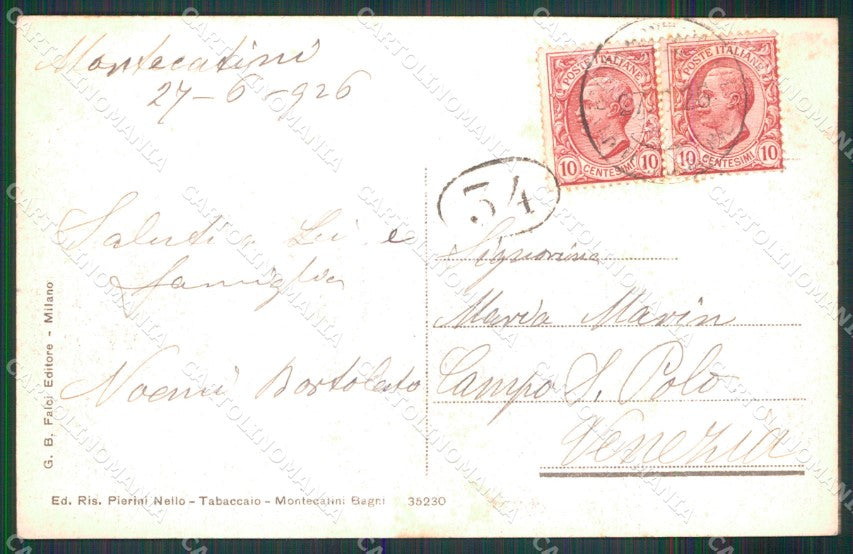 Montecatini
27-6-926
POSTE ITALIANE
10 CENTESIMI 10
POSTE ITALIANE
10 CENTESIMI 10
54
Saluti a Lei e
famiglia
Noemi Bortolato
Signorina
Maria Marin
Campo S. Polo
Venezia
G. B. Falci Editore - Milano
Ed. Ris. Pierini Nello - Tabaccaio - Montecatini Bagni 35230
CARTOLINOMANIA